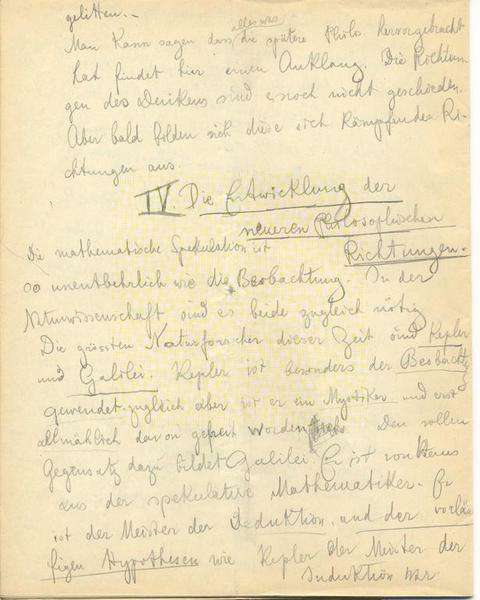 gelitten.–
alles was
Man kann sagen dass die spätere Philo. hervorgebracht
hat findet hier einen Anklang. Die Richtun-
gen des Denkens sind noch nicht geschieden.
Aber bald bilden sich diese sich kämpfenden Ri-
chtungen aus.
IV. Die Entwicklung der
neueren Philosophischen
Richtungen.
Die mathematische Spekulation ist
so unentbehrlich wie die Beobachtung. In der
Naturwissenschaft sind es beide zugleich nötig
Die grössten Naturforscher dieser Zeit sind Kepler
und Galilei. Kepler ist besonders der Beobachtg
gewendet zugleich aber ist er ein Mystiker und erst
allmählich davon geheilt worden. Den vollen
Gegensatz dazu bildet Galilei. Er ist von Haus
aus der spekulative Mathematiker. Er
ist der Meister der Deduktion, und der vorläu-
figen Hypothesen wie Kepler der Meister der
Induktion war